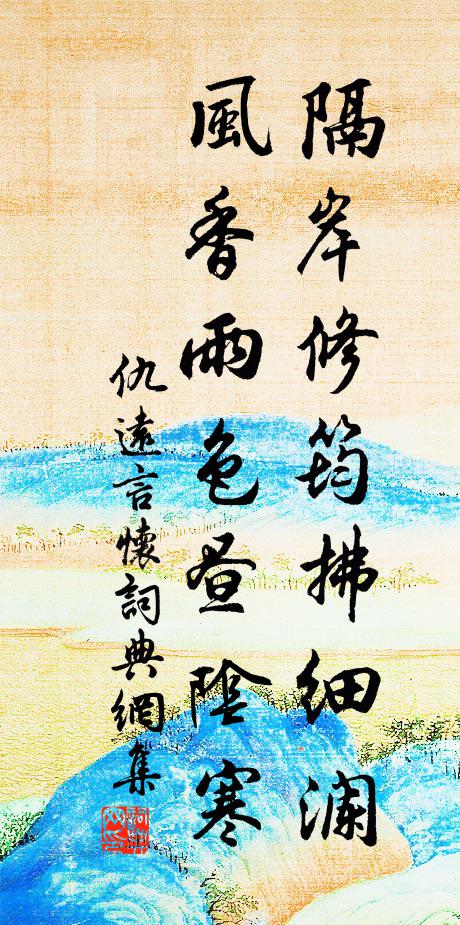 隔岸修筠拂细澜
風香雨色昼陰寒
仇遠言懷詞典網集